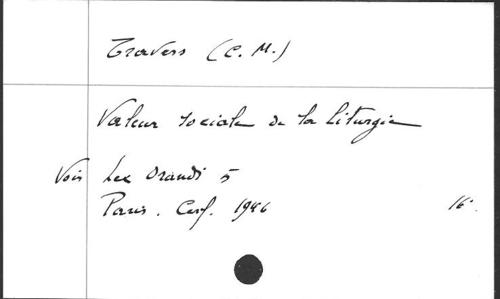 Travers (C. M.)
Valeur sociale de la liturgie
Voir Lex Orandi 5
Paris. Cerf. 1946 16°